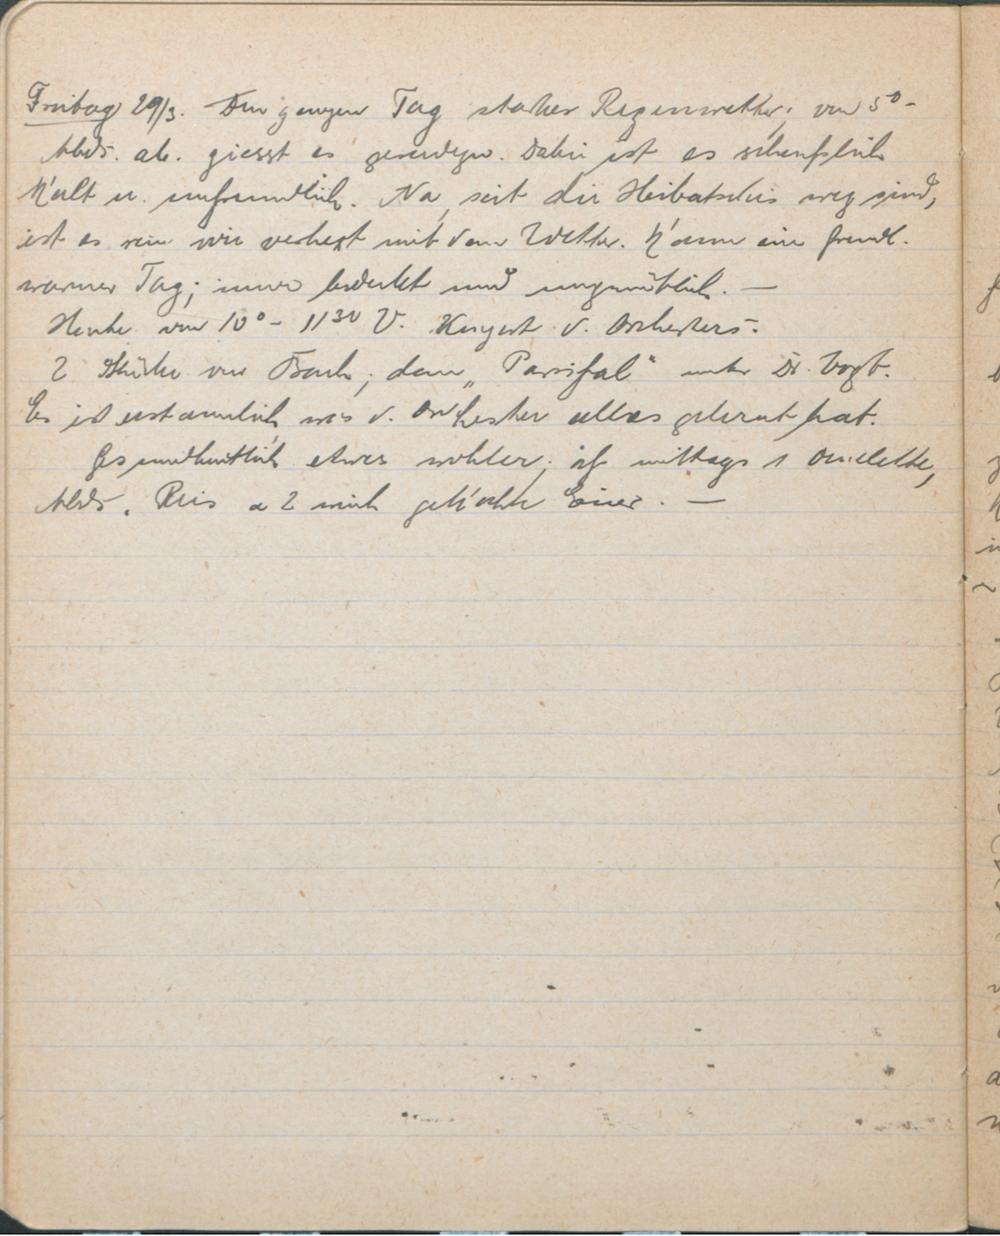 Freitag 29/3. Den ganzen Tag starkes Regenwetter; von 5⁰-
Abds. ab. giesst es geradezu. Dabei ist es scheusslich
kalt u. unfreundlich. Na, seit die Heibatschis weg sind,
ist es rein wie verhext mit dem Wetter. Kaum ein freundl.
warmer Tag; immer bedeckt und ungemütlich. —
Heute von 10⁰- 11³⁰ V. Konzert d. Orchesters.
2 Stücke von Bach; dann „Parsifal" unter Dr. Vogt.
Es ist erstaunlich was d. Orchester alles gelernt hat.
Gesundheitlich etwas wohler; aß mittags 1 Omelette,
Abds. Reis 2 weich gekochte Eier. —